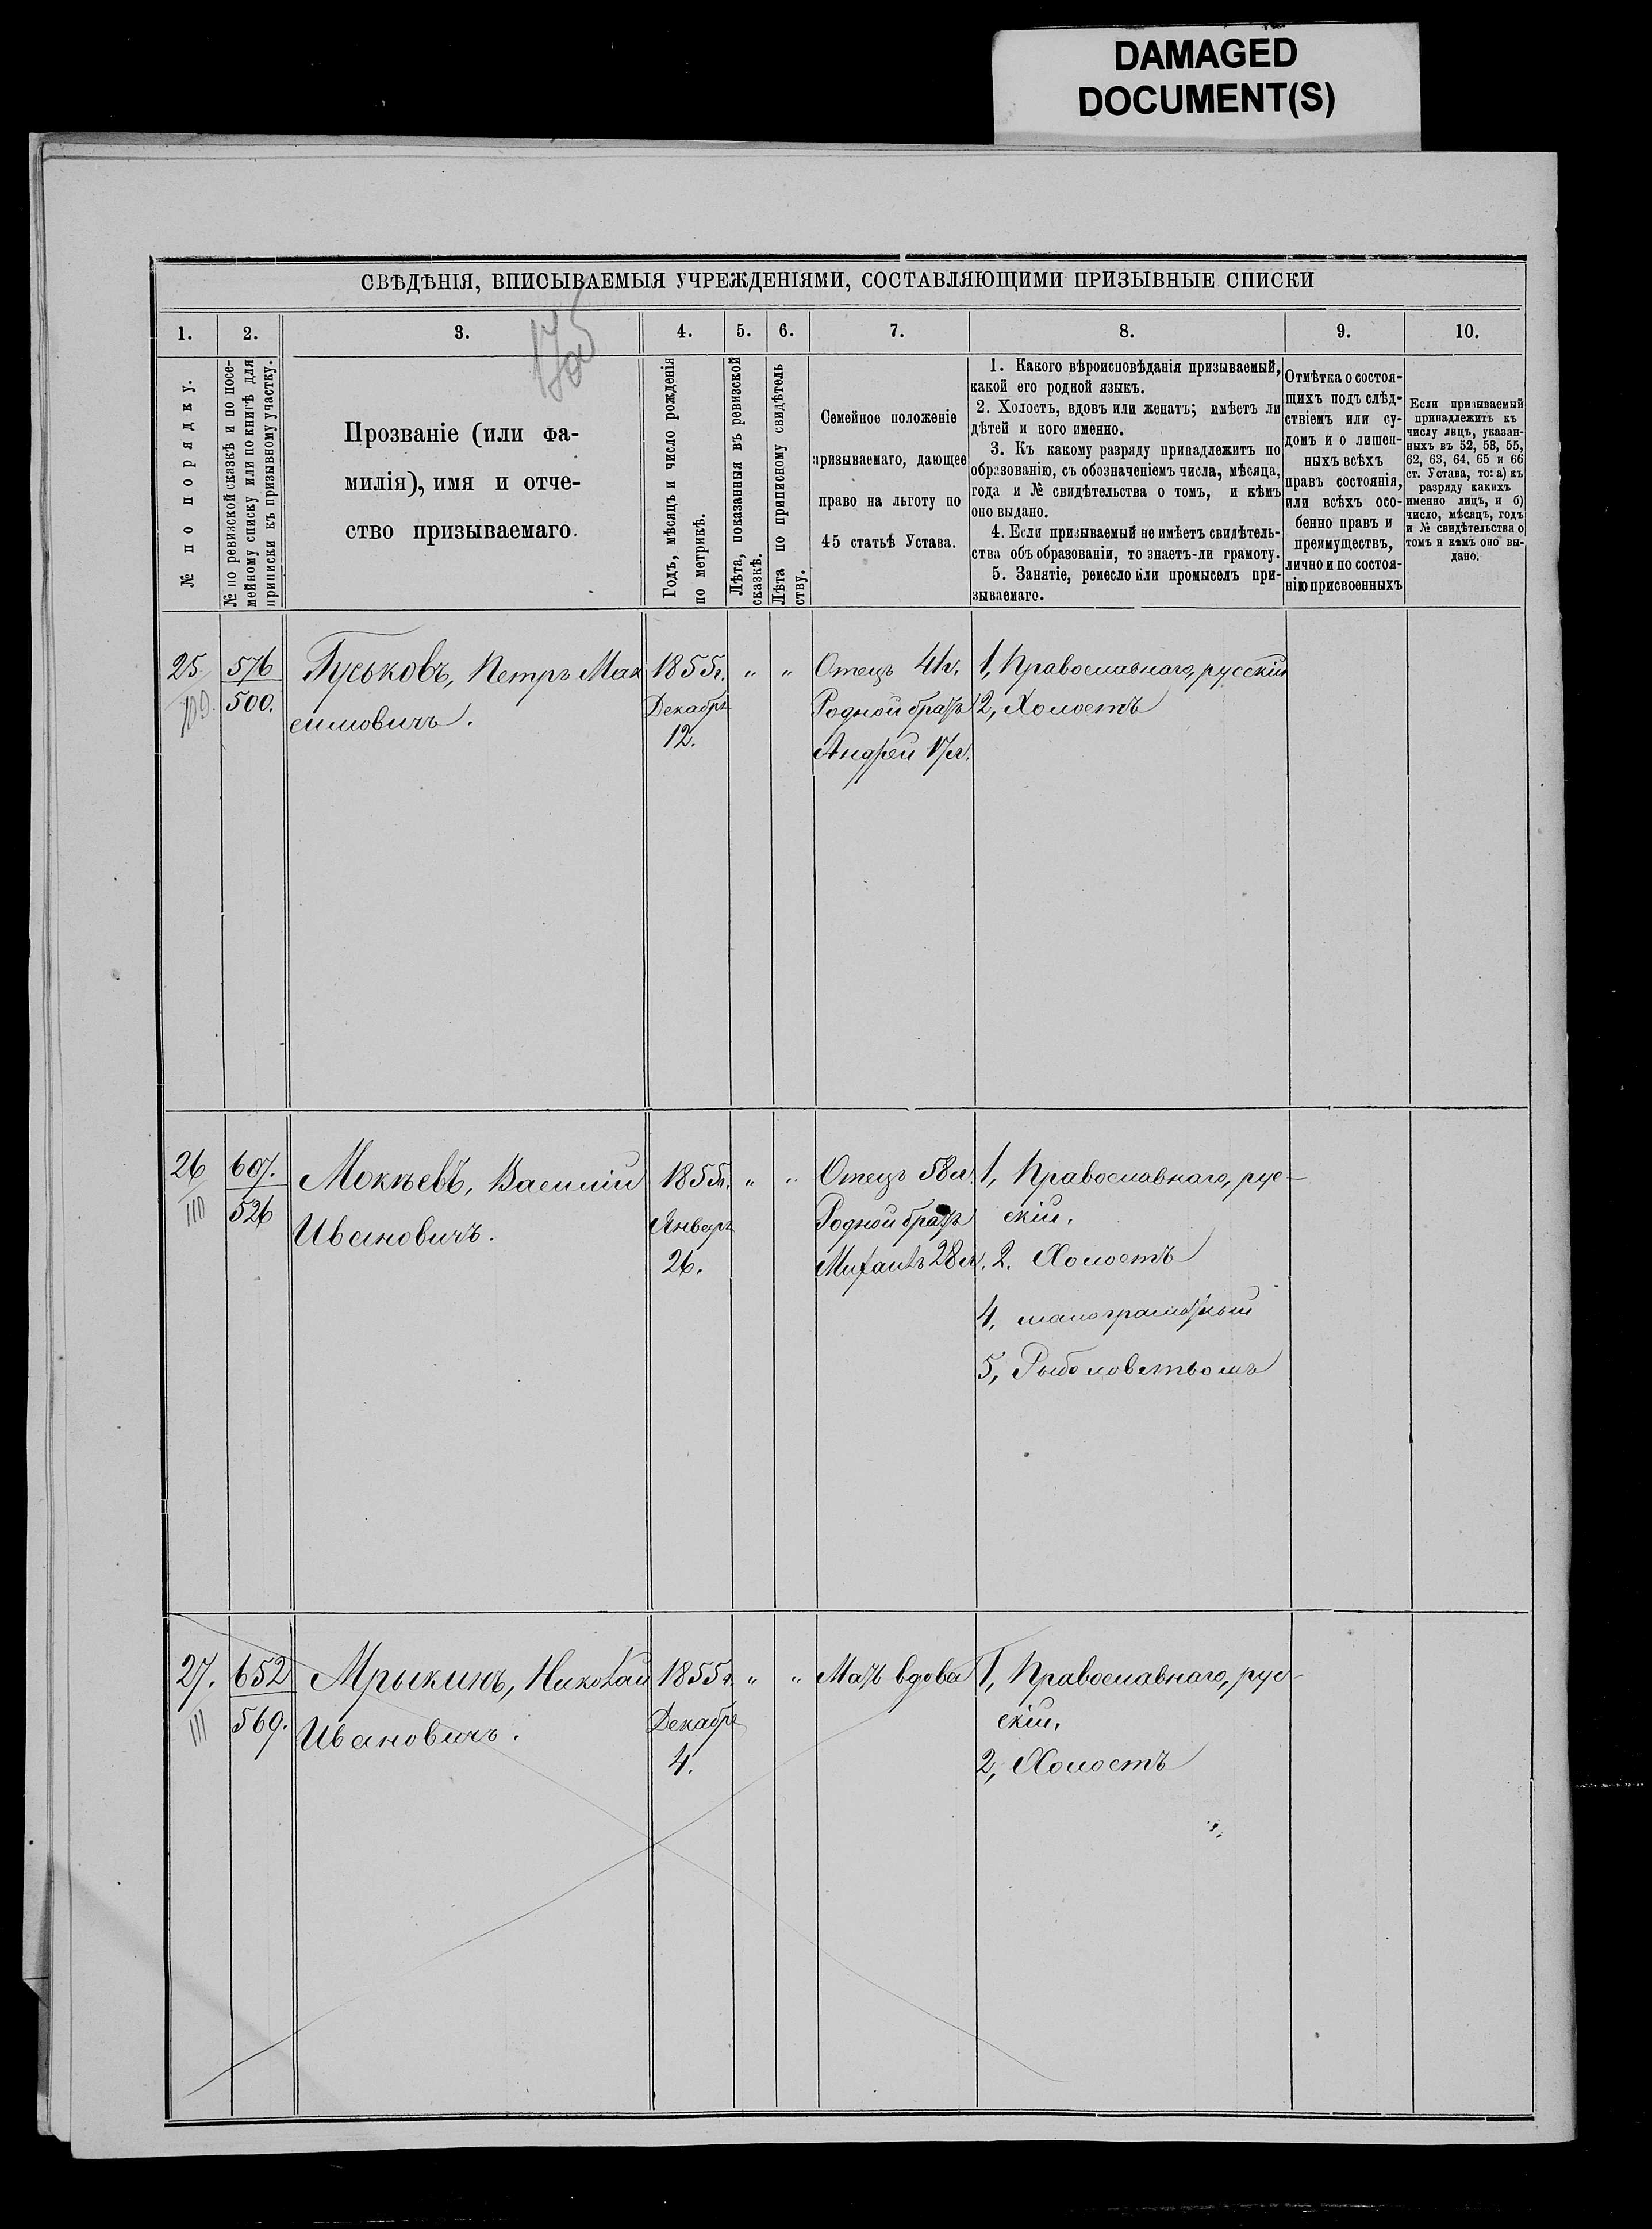 DAMAGED
DOCUMENT(S)
СВѢДѢНІЯ, ВПИСЫВАЕМЫЯ УЧРЕЖДЕНІЯМИ, СОСТАВЛЯЮЩИМИ ПРИЗЫВНЫЕ СПИСКИ
1. 2. 3. 4. 5. 6. 7. 8. 9. 10.
№ по порядку.
№ по ревизской сказкѣ и по посе-
мейному списку или по книгѣ для
приписки къ призывному участку.
Прозваніе (или фа-
милія), имя и отче-
ство призываемаго.
Годъ, мѣсяцъ и число рожденія
по метрикѣ.
Лѣта, показанныя въ ревизской
сказкѣ.
Лѣта по приписному свидѣтель
ству.
Семейное положеніе
призываемаго, дающее
право на льготу по
45 статьѣ Устава.
1. Какого вѣроисповѣданія призываемый,
какой его родной языкъ.
2. Холостъ, вдовъ или женатъ; имѣетъ ли
дѣтей и кого именно.
3. Къ какому разряду принадлежитъ по
образованію, съ обозначеніемъ числа, мѣсяца,
года и № свидѣтельства о томъ, и кѣмъ
оно выдано.
4. Если призываемый не имѣетъ свидѣтель-
ства объ образованіи, то знаетъ-ли грамоту.
5. Занятіе, ремесло или промыселъ при-
зываемаго.
Отмѣтка о состоя-
щихъ подъ слѣд-
ствіемъ или су-
домъ и о лишен-
ныхъ всѣхъ
правъ состоянія,
или всѣхъ осо-
бенно правъ и
преимуществъ,
лично и по состоя-
нію присвоенныхъ
Если призываемый
принадлежитъ къ
числу лицъ, указан-
ныхъ въ 52, 53, 55,
62, 63, 64, 65 и 66
ст. Устава, то: а) къ
разряду какихъ
именно лицъ, и б)
число, мѣсяцъ, годъ
и № свидѣтельства о
томъ и кѣмъ оно вы-
дано.
25 576 Гуськовъ, Петръ Мак 1855г. " " Отецъ 41г. 1, Православнаго, русскій
109. 500. симовичъ. Декабрь Родной братъ 2, Холостъ
12. Андрей 17л.
26 607. Мокѣевъ, Василій 1855г. " " Отецъ 58л. 1, Православнаго, рус-
110 526 Ивановичъ. Январь Родной братъ скій.
26. Михаилъ 28л. 2. Холостъ
4, малограмотный
5, Рыболовствомъ
27. 652 Мрыкинъ, Николай 1855г. " " Мать вдова 1, Православнаго, рус-
111 569. Ивановичъ. Декабрь скій.
4. 2, Холостъ